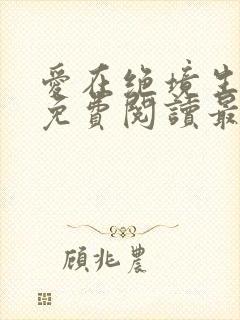 愛在絕境生
免費閱讀最
顧兆農